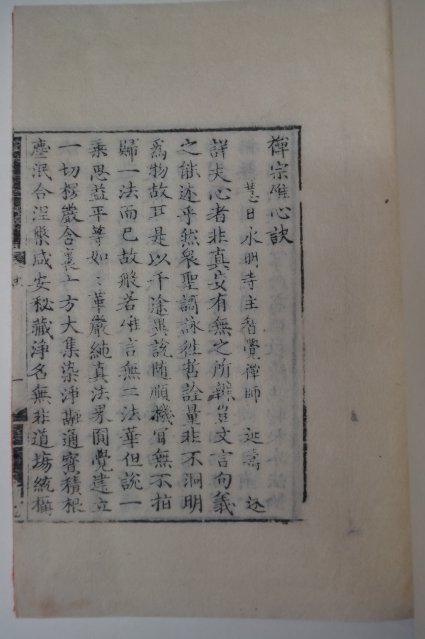 禪宗唯心訣
慧日永明寺主智覺禪師 延壽 述
詳夫心者非真妄有無之所辨豈文言句義
之能述乎然衆聖謌詠徃哲詮量非不洞明
為物故耳是以千途異說隨順機冝無不指
歸一法而已故般若唯言無二法華但說一
乘思益平等如〻華嚴純真法界圓覺建立
一切楞嚴含裹十方大集染淨融通寶積根
塵泯合涅槃咸安秘藏淨名無非道場統攝